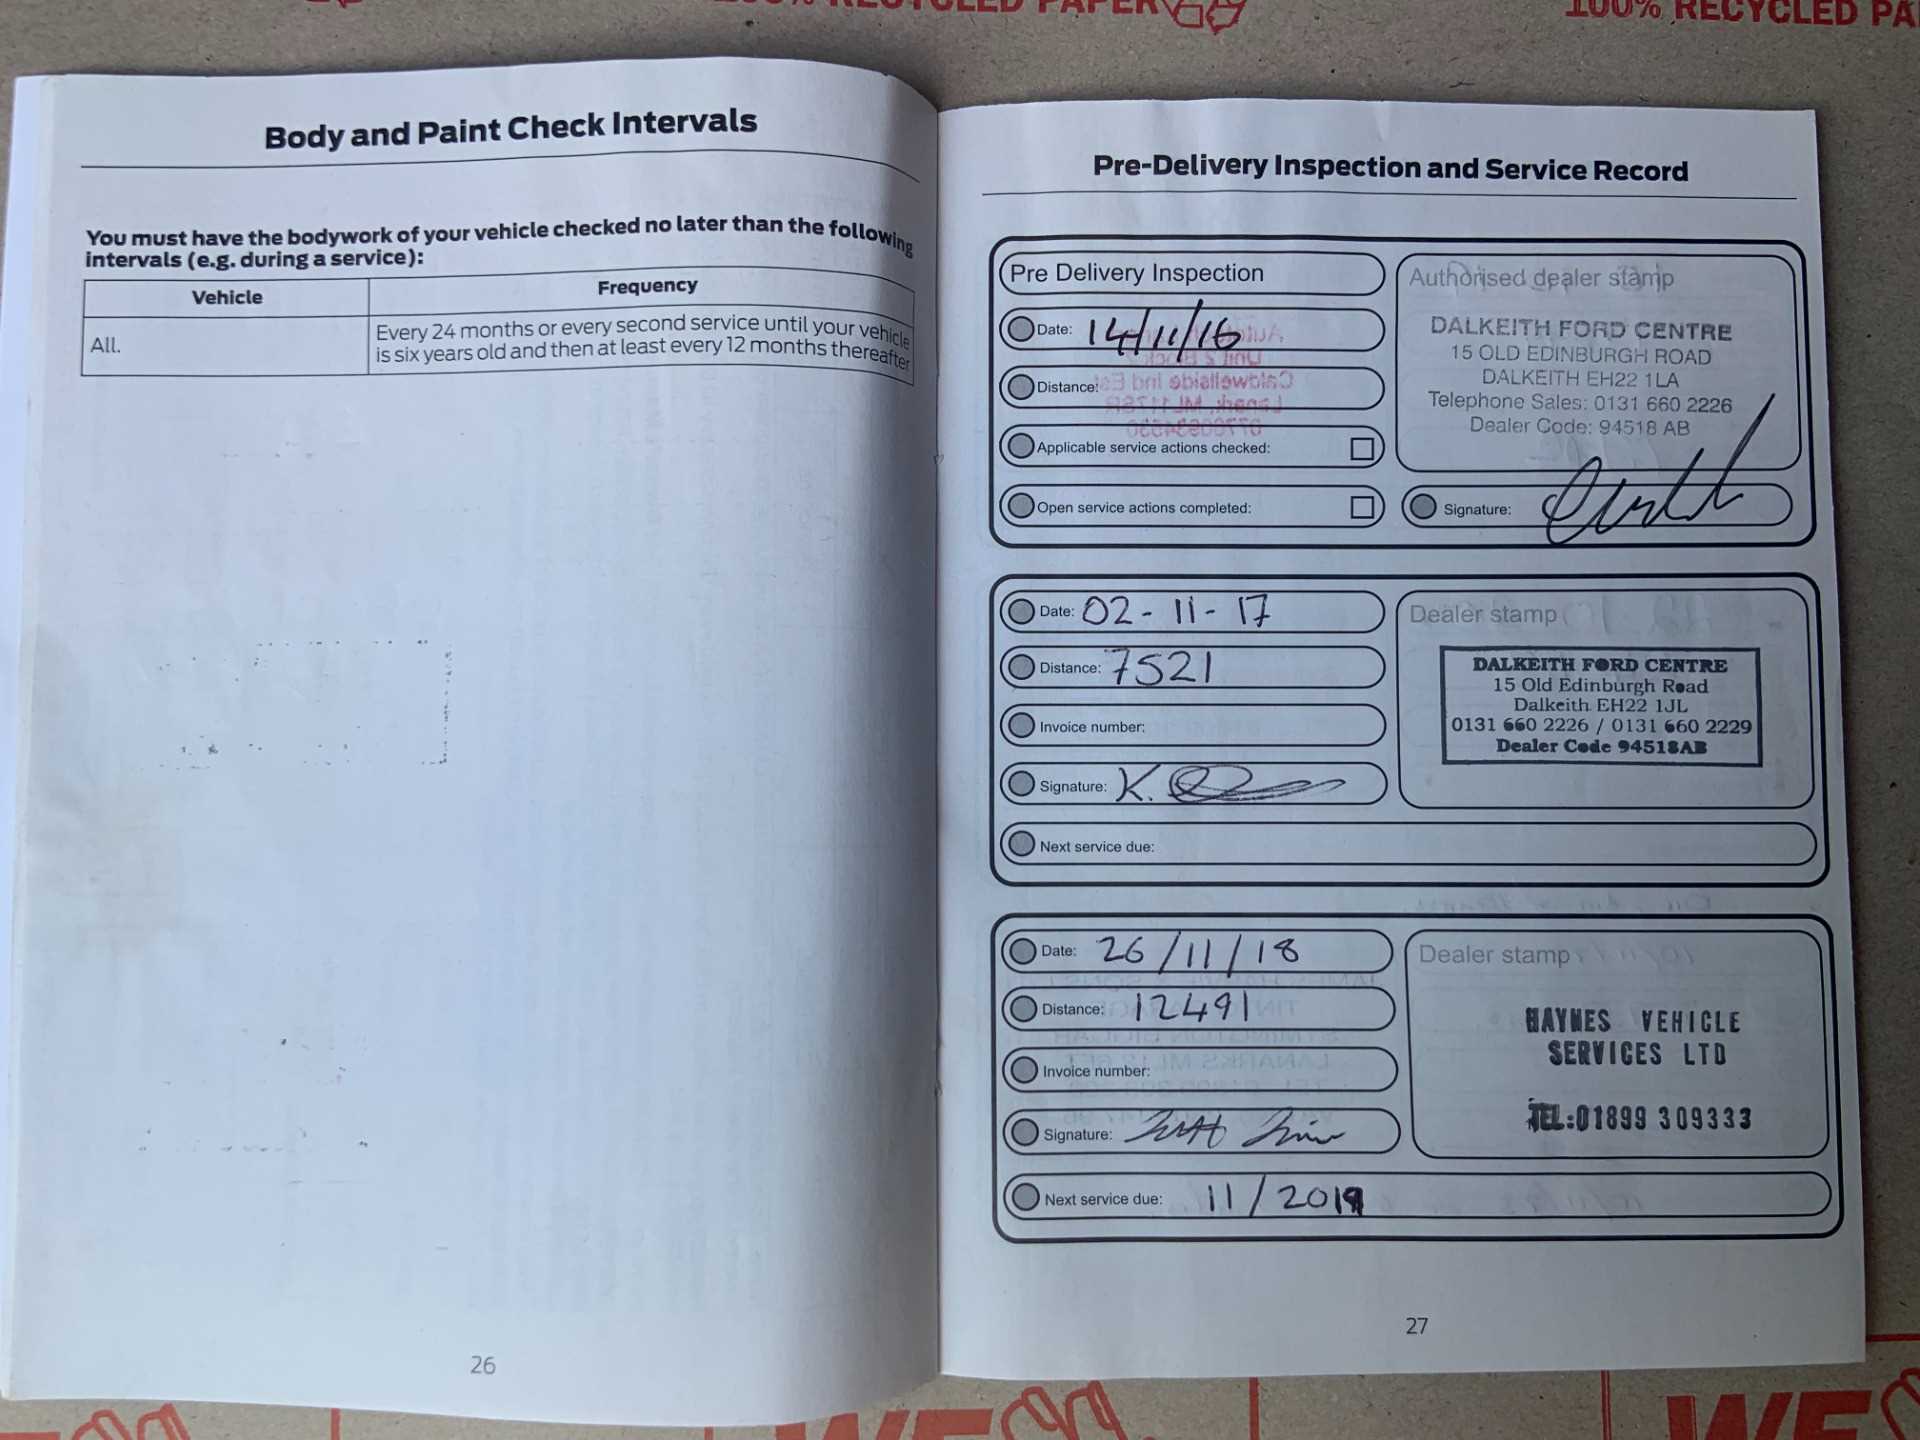 100% RECYCLED PAPER
100% RECYCLED PA
Body and Paint Check Intervals
You must have the bodywork of your vehicle checked no later than the following
intervals (e.g. during a service):
Vehicle
Frequency
All.
Every 24 months or every second service until your vehicle
is six years old and then at least every 12 months thereafter
26
Pre-Delivery Inspection and Service Record
Pre Delivery Inspection
Date: 14/11/16
Distance:
Applicable service actions checked:
Open service actions completed:
Authorised dealer stamp
DALKEITH FORD CENTRE
15 OLD EDINBURGH ROAD
DALKEITH EH22 1LA
Telephone Sales: 0131 660 2226
Dealer Code: 94518 AB
Signature:
Date: 02-11-17
Distance: 7521
Invoice number:
Signature: K.
Next service due:
Dealer stamp
DALKEITH FORD CENTRE
15 Old Edinburgh Road
Dalkeith EH22 1JL
0131 660 2226 / 0131 660 2229
Dealer Code 94518AB
Date: 26/11/18
Distance: 12491
Invoice number:
Signature:
Next service due: 11/2019
Dealer stamp
HAYNES VEHICLE
SERVICES LTD
TEL:01899 309333
27
WE
WE